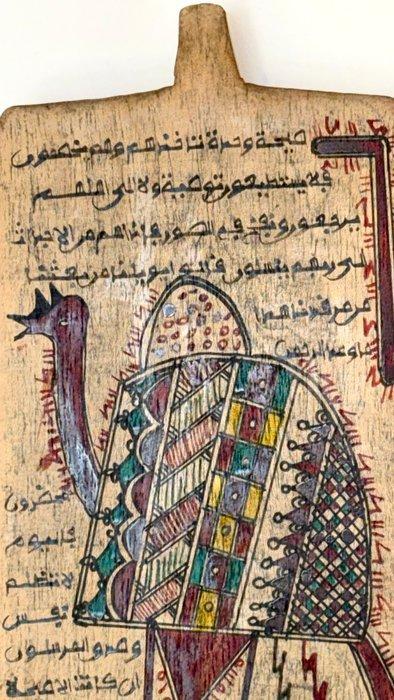 صيحة وحدة تاخذهم وهم يخصمون
فلا يستطيعون توصية ولا الى اهلهم
يرجعون ونفخ في الصور فاذا هم من الاجداث
الى ربهم ينسلون قالوا يويلنا من بعثنا
من مرقدنا هذا
ما وعد الرحمن
محضرون
فاليوم
لا تظلم
نفس
وصدق المرسلون
ان كانت الا صيحة